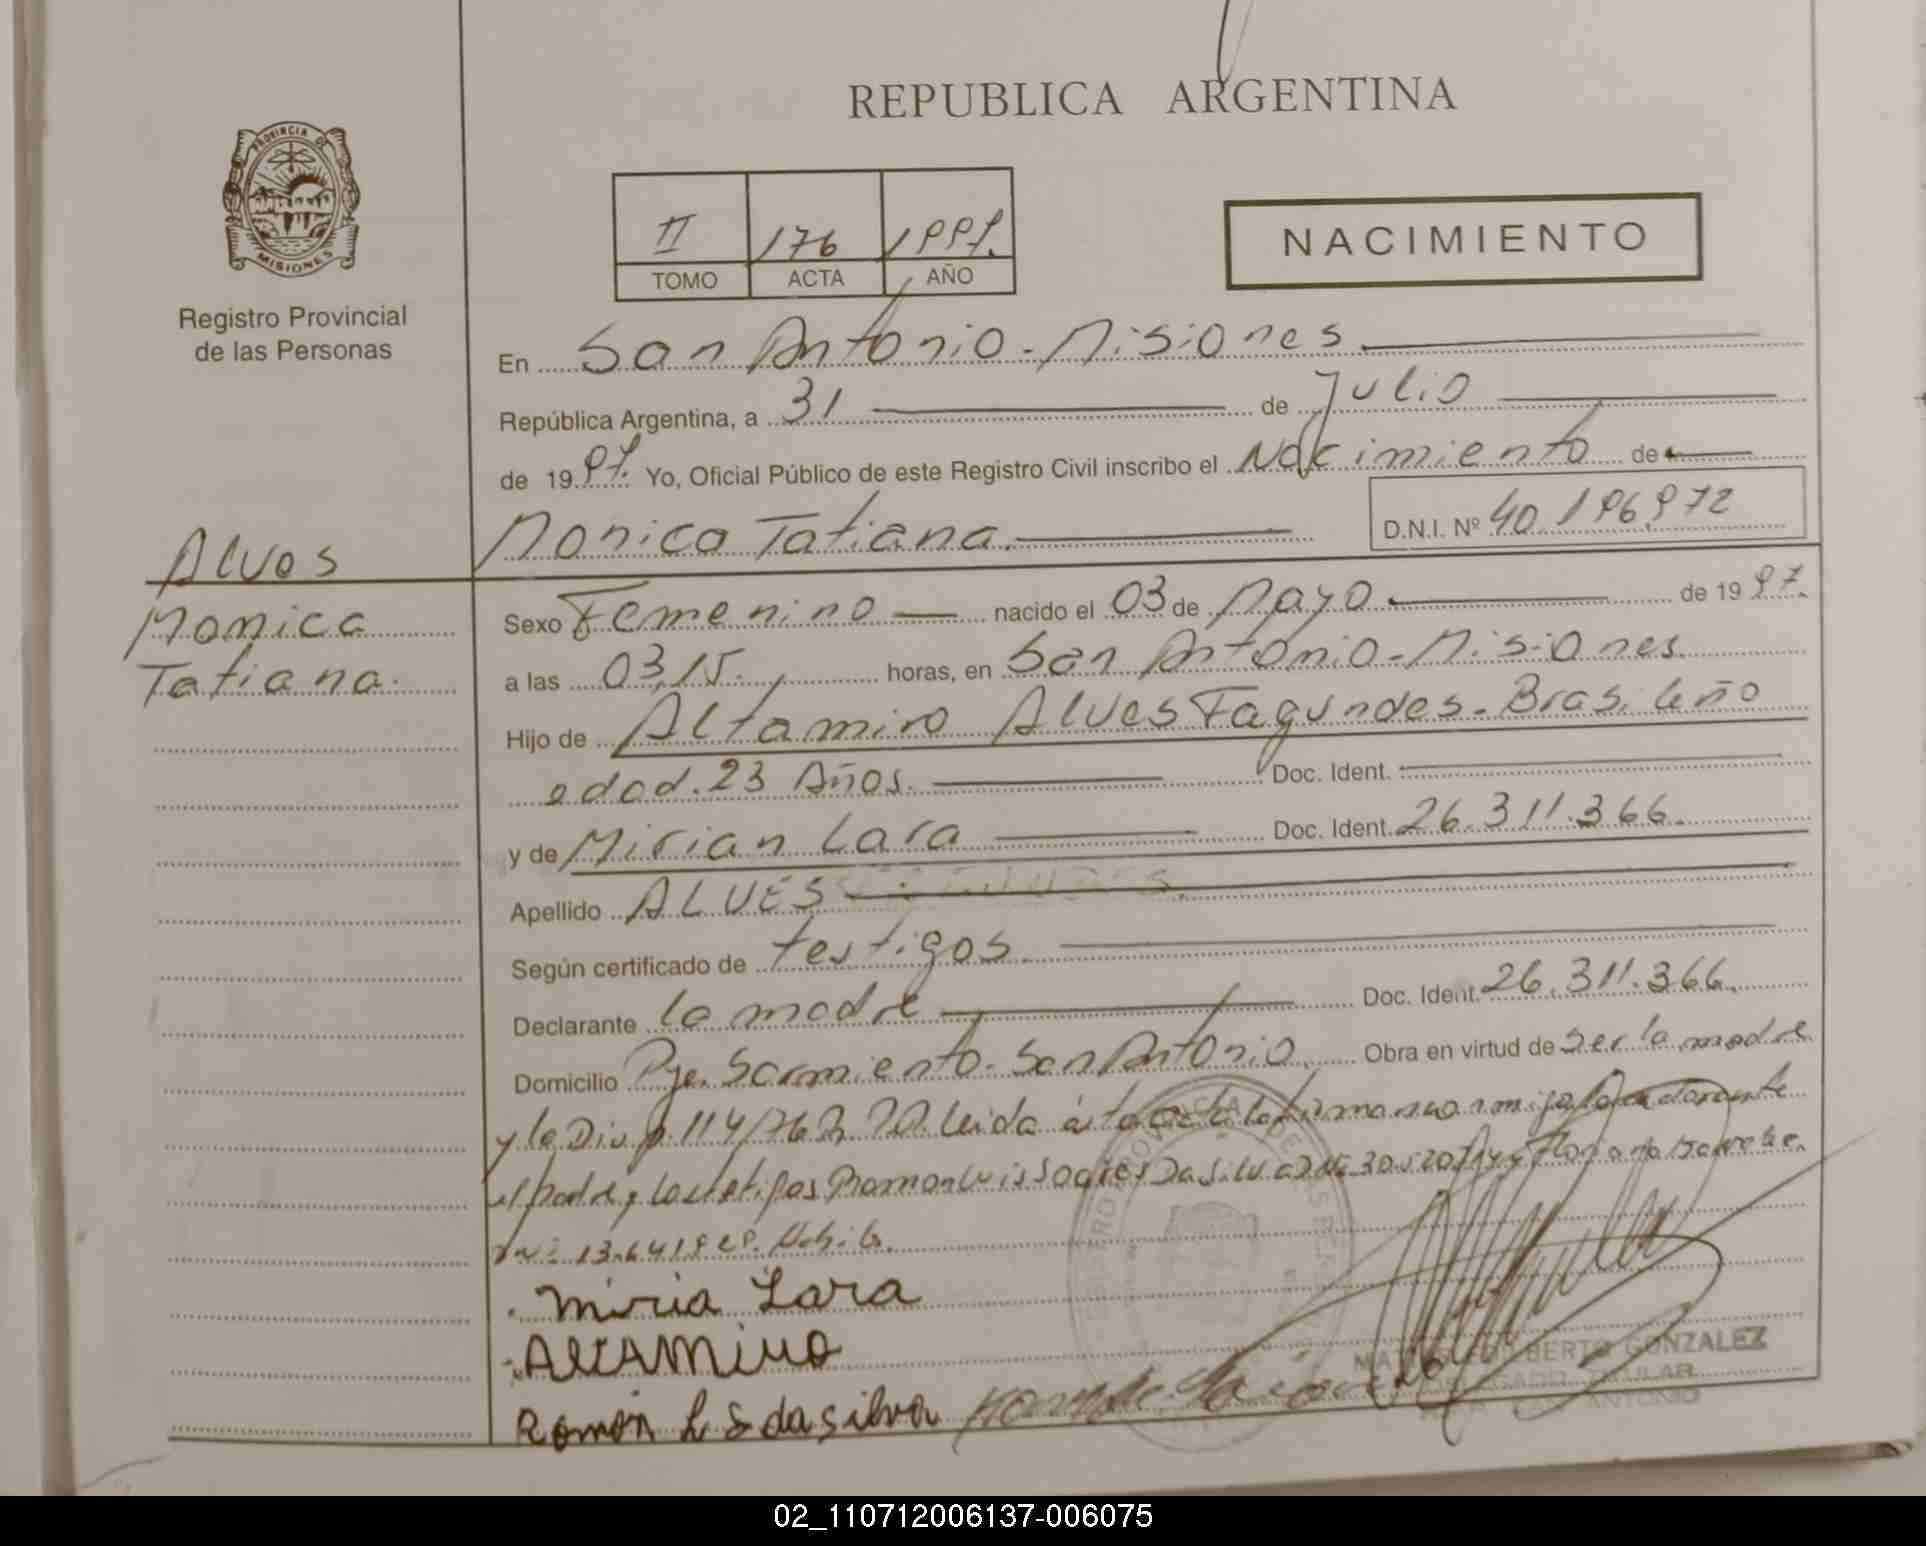 REPUBLICA ARGENTINA
PROVINCIA DE
MISIONES
Registro Provincial
de las Personas
II 176 1997.
TOMO ACTA AÑO
NACIMIENTO
En San Antonio - Misiones
República Argentina, a 31 de Julio
de 1997. Yo, Oficial Público de este Registro Civil inscribo el Nacimiento de
Monica Tatiana. D.N.I. Nº 40.196.972
Alves
Monica
Tatiana.
Sexo Femenino nacido el 03 de Mayo de 1997.
a las 03,15. horas, en San Antonio - Misiones.
Hijo de Altamiro Alves Fagundes - Brasileño
edad. 23 Años. Doc. Ident.
y de Mirian Lara Doc. Ident. 26.311.366.
Apellido ALVES
Según certificado de testigos.
Declarante la madre Doc. Ident. 26.311.366.
Domicilio Pje. Sarmiento - San Antonio. Obra en virtud de ser la madre
y la leida firman conmigo
el padre y los testigos Ramon Luis Da Silva
Miria Lara
ALTAMIRO
Ramón L S da silva
GONZALEZ
DELEGADO TITULAR
SAN ANTONIO
02_110712006137-006075